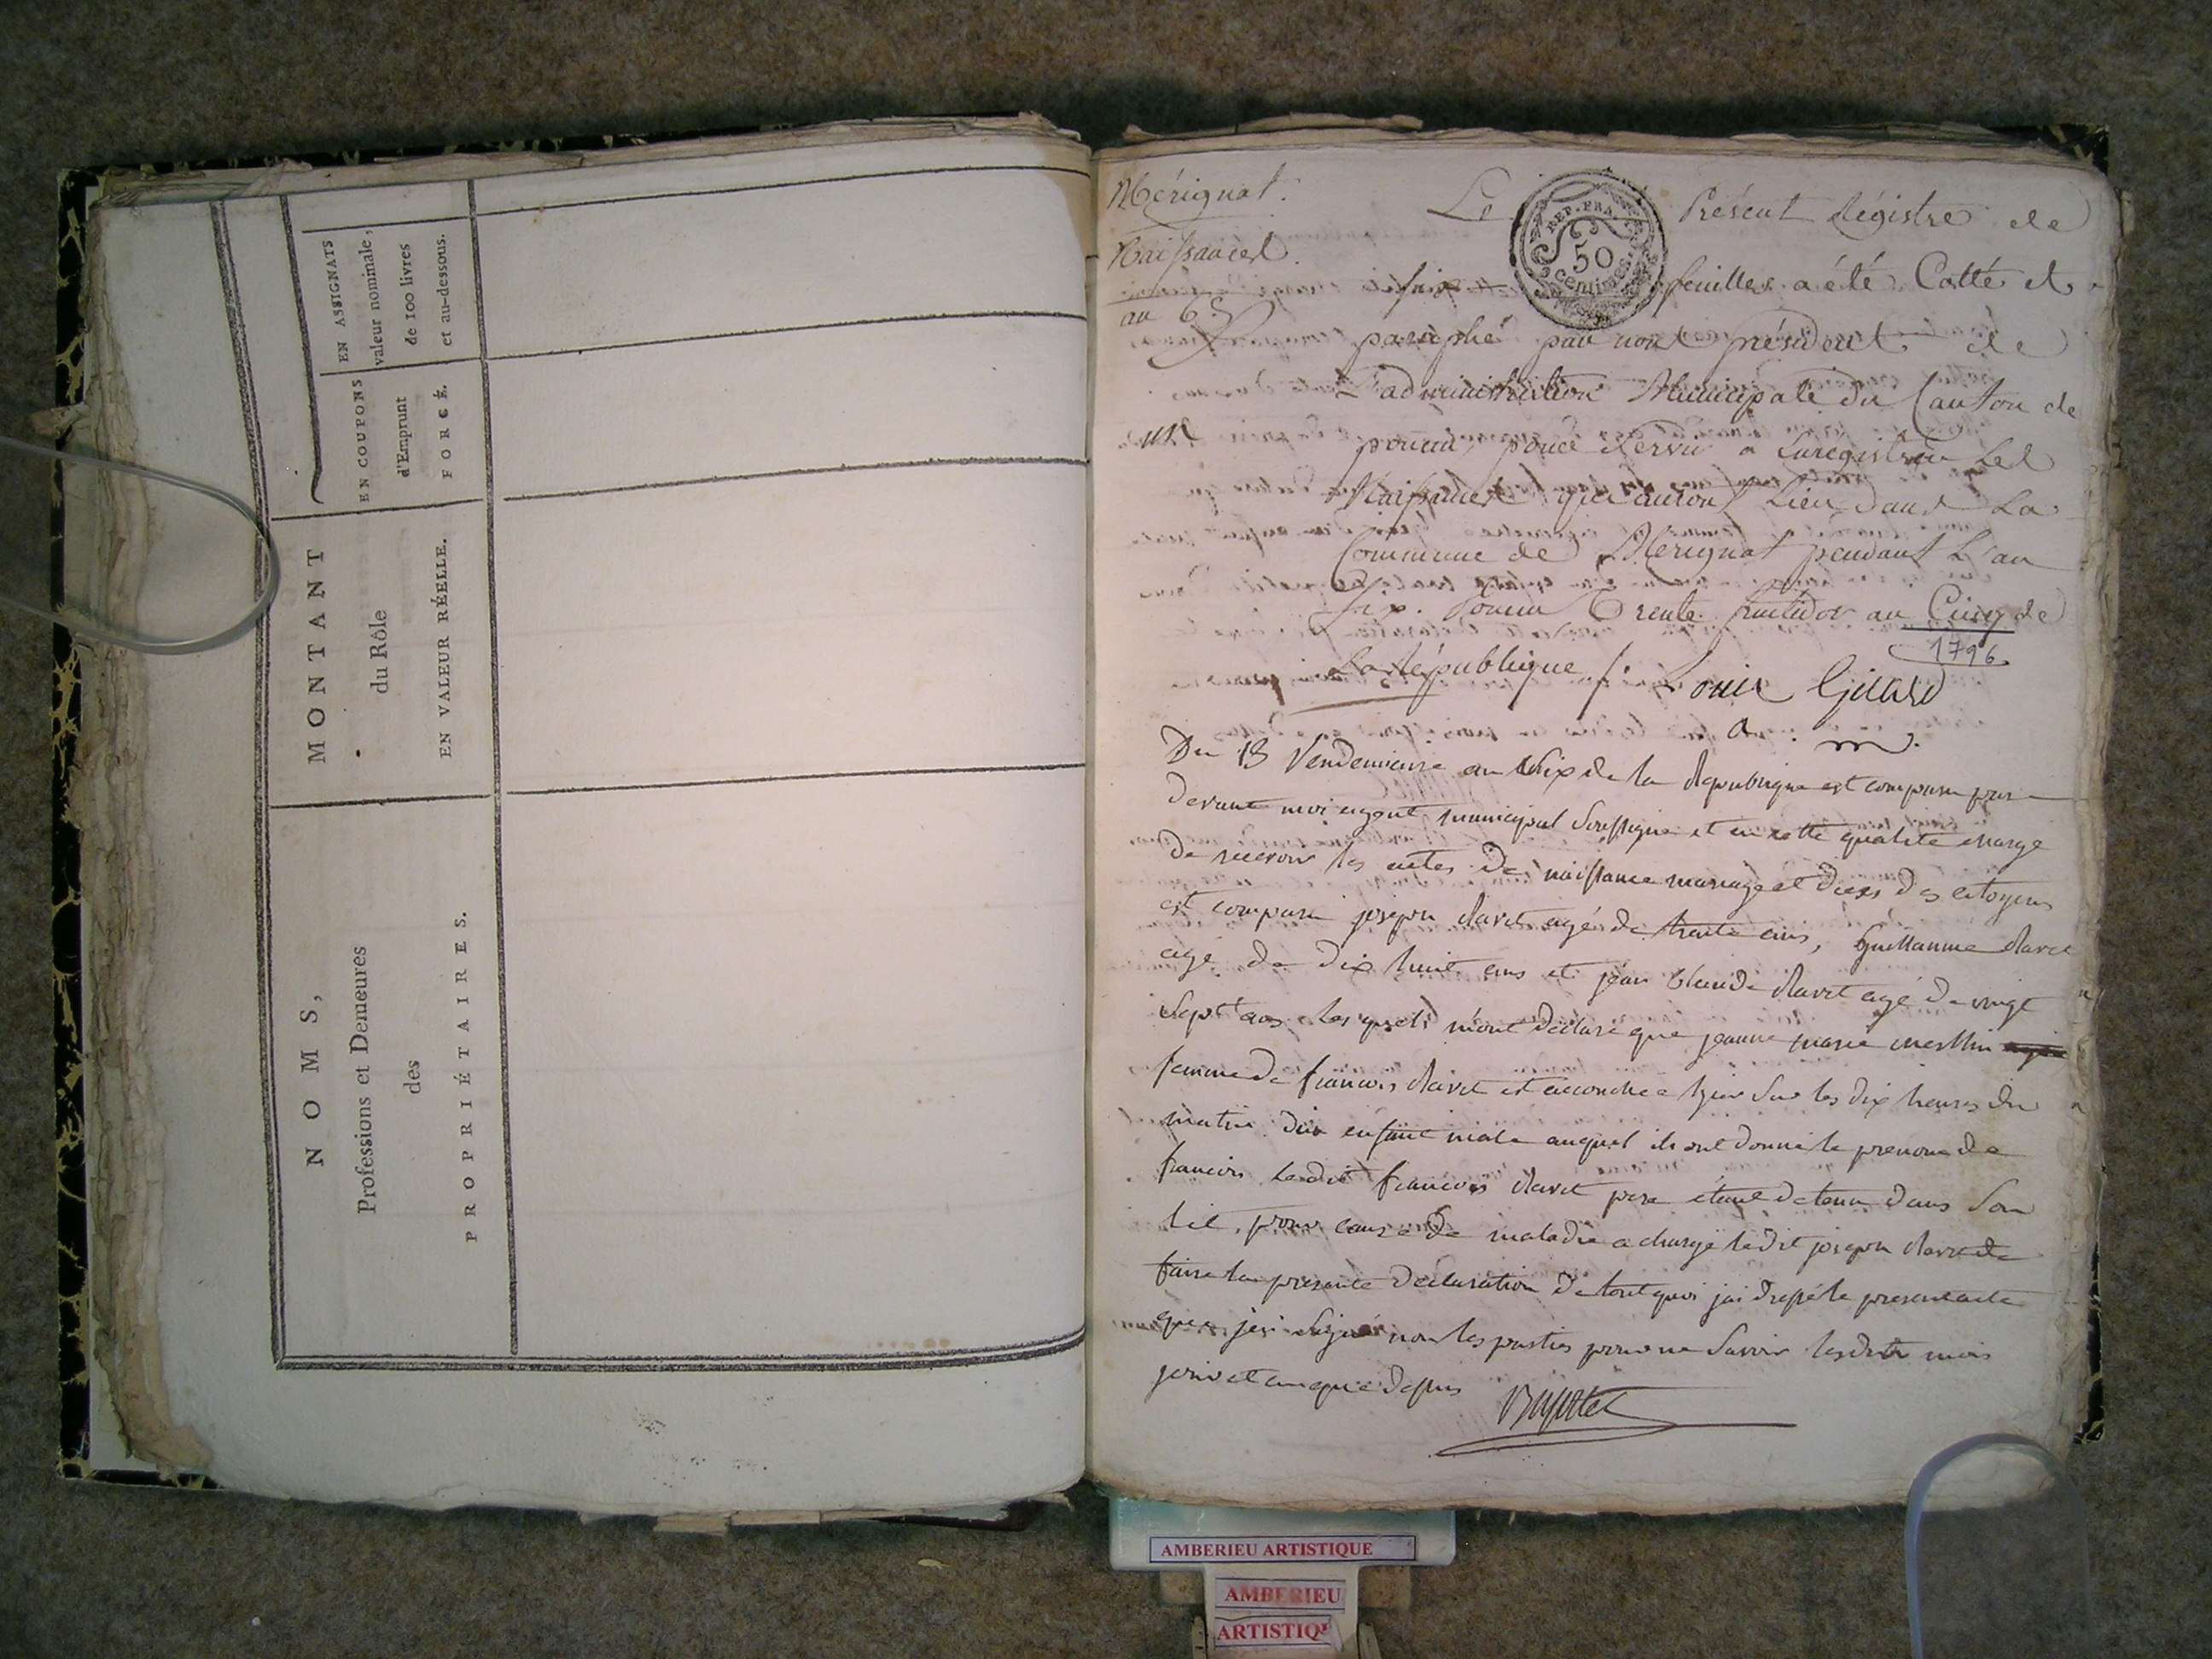 EN ASSIGNATS
valeur nominale,
de 100 livres
et au-dessous.
EN COUPONS
d'Emprunt
FORCÉ.
MONTANT
du Rôle
EN VALEUR RÉELLE.
NOMS,
Professions et Demeures
des
PROPRIÉTAIRES.
Mérignat.
Naissances.
an 6.e
un
REP. FRA.
50
centimes.
Le Présent Régistre de
six feuilles a été Cotté et
paraphé par nous président de
L'administration Municipale du Canton de
poncin, pour Servir a Enregistrer Les
Naissances qui auront Lieu dans La
Commune de Mérignat pendant L'an
Six. Poncin Trente fructidor an Cinq de
1796
La République /: Louis Girard
Du 13 Vendemiaire an Six de la Republique est comparu par
devant moi agent municipal Soussigné et en cette qualité chargé
de recevoir les actes de naissance mariage et deces des citoyens
est comparu joseph Ravet agé de trente ans, Guillaume Ravet
agé de dix huit ans et jean Claude Ravet agé de vingt
Sept ans les quels m'ont declaré que jeanne marie
femme de francois Ravet est accouchee hier Sur les dix heures du
matin d'un enfant male auquel ils ont donné le prenom de
francois Ledit francois Ravet pere étant detenu dans Son
lit, pour cause de maladie a chargé ledit joseph Ravet de
faire la presente declaration de tout quoi jai dressé le present acte
que jai Signé non les parties pour ne Savoir lesdits mois
jour et an que dessus